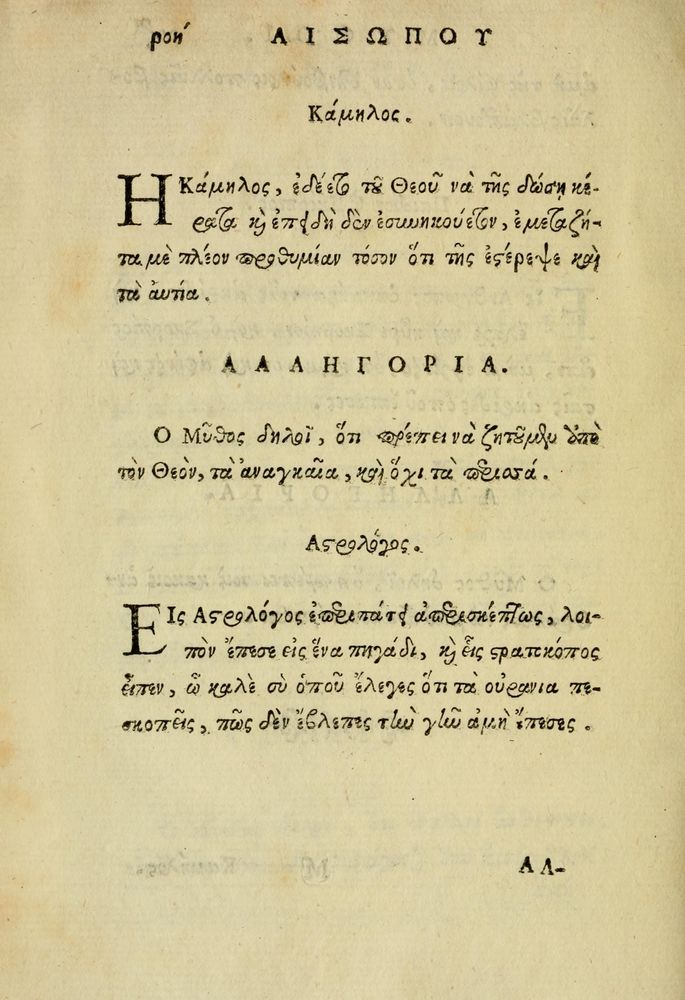 ροή ΑΙΣΩΠΟΥ
Κάμηλος.
Η Κάμηλος, ἐδέετο τοῦ Θεοῦ νὰ τῆς δώσῃ κέ-
ρατα καὶ ἐπειδὴ δὲν ἐσυνηκούετον, ἐμεταζή-
τα μὲ πλέον προθυμίαν τόσον ὅτι τῆς ἐστέρεψε καὶ
τὰ ἀυτία.
ΑΛΛΗΓΟΡΙΑ.
Ο Μῦθος δηλοῖ, ὅτι πρέπει νὰ ζητοῦμεν ἀπὸ
τὸν Θεὸν, τὰ ἀναγκαῖα, καὶ ὄχι τὰ περισσά.
Αστρολόγος.
ΕΙς Αστρολόγος ἐπεριπάτει ἀπερισκέπτως, λοι-
πὸν ἔπεσε εἰς ἕνα πηγάδι, καὶ εἷς στρατικόπος
εἶπεν, ὦ καλὲ σὺ ὁποῦ ἔλεγες ὅτι τὰ οὐράνια πε-
σκοπεῖς, πῶς δὲν ἔβλεπες τὴν γῆν ἀμὴ ἔπεσες.
ΑΛ-